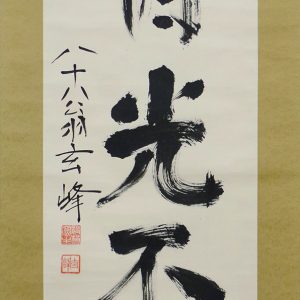 光不
八十八翁玄峰